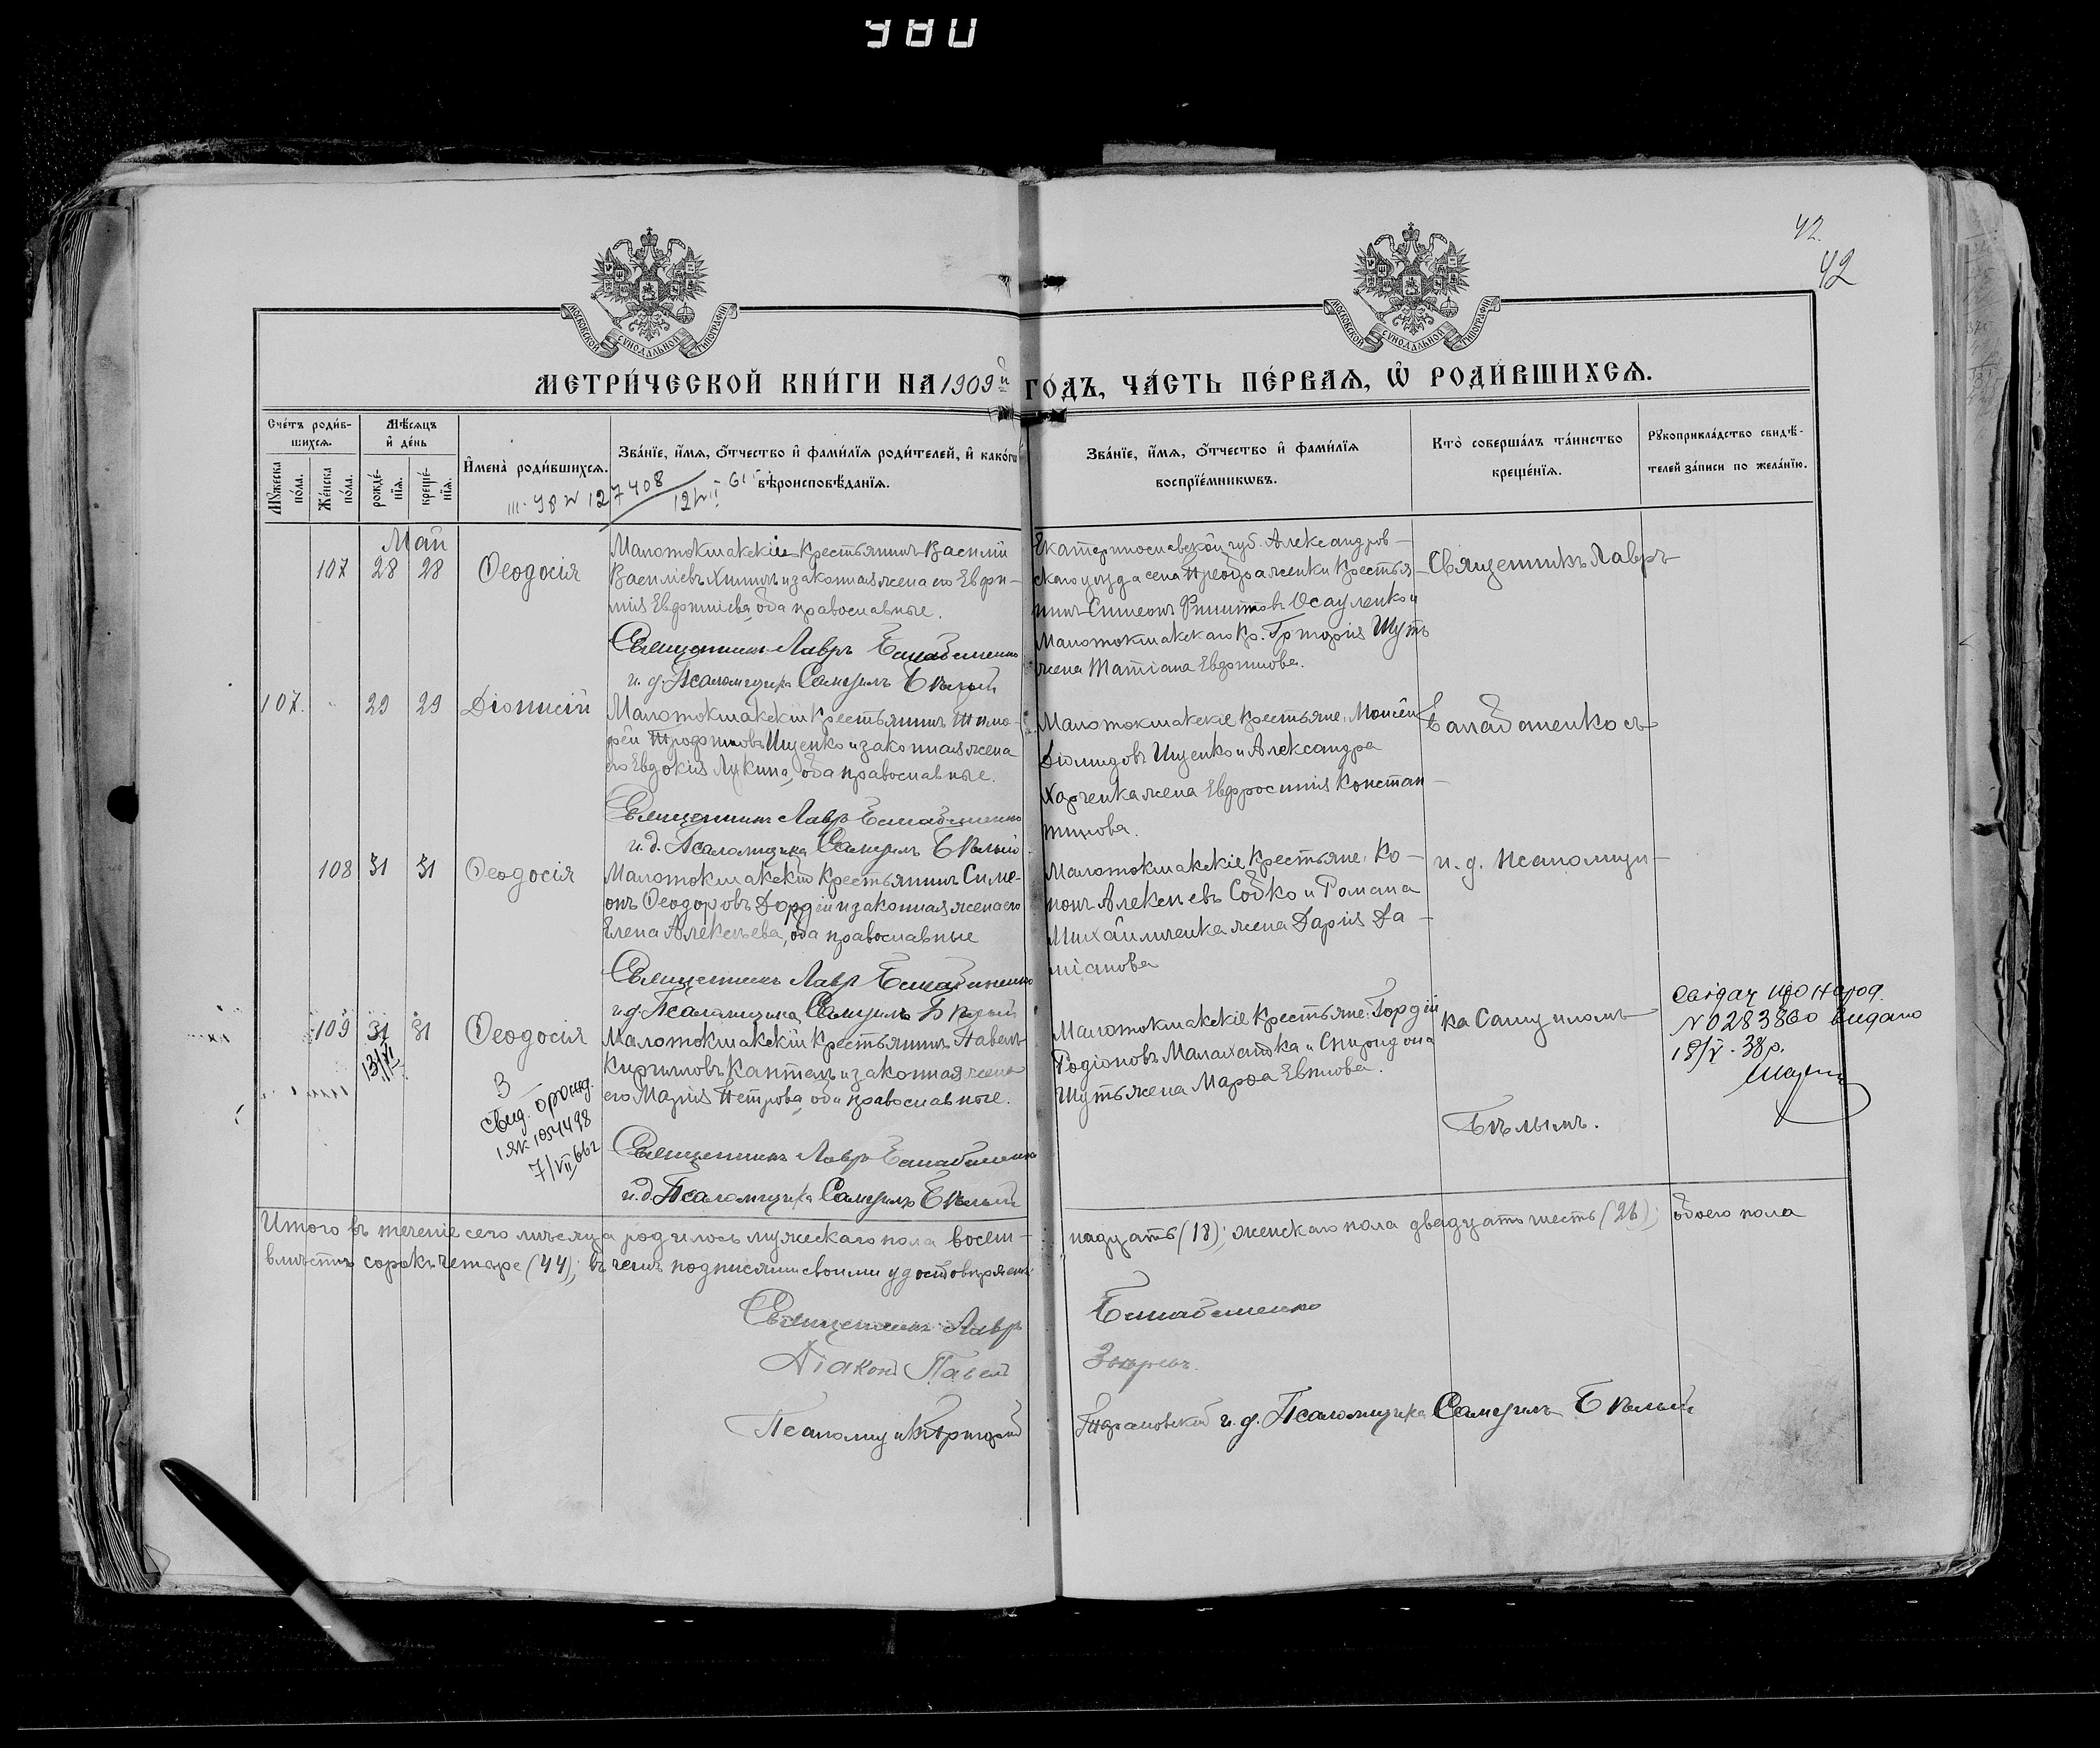 980
42.
42
МОСКОВСКОЙ СѴНОДАЛЬНОЙ ТИПОГРАФІИ
МОСКОВСКОЙ СѴНОДАЛЬНОЙ ТИПОГРАФІИ
МЕТРИ́ЧЕСКОЙ КНИ́ГИ НА 1909й ГО́ДЪ, ЧА́СТЬ ПЕ́РВАѦ, Ѡ҆ РОДИ́ВШИХСѦ.
Сче́тъ роди́в-
шихсѧ.
Мѣ́сѧцъ
и҆ де́нь
Мꙋ́жеска по́ла.
Же́нска по́ла.
рожде́-
нїѧ.
креще́-
нїѧ.
И҆мена̀ роди́вшихсѧ.
Зва́нїе, и҆́мѧ, ѻ҆́тчество и҆ фами́лїѧ роди́телей, и҆ како́гѡ
вѣроисповѣ́данїѧ.
Зва́нїе, и҆́мѧ, ѻ҆́тчество и҆ фами́лїѧ
воспрїе́мникѡвъ.
Кто̀ соверша́лъ та́инство
креще́нїѧ.
Рꙋкоприкла́дство свидѣ́-
телей за́писи по жела́нїю.
127408
Май
107 28 28 Ѳеодосія
Малотокмакскій крестьянинъ Василій
Василіевъ и законная жена его Евфи-
мія Евфиміева, оба православные.
Священникъ Лавръ Балабаненко
и. д. Псаломщика Самуилъ Бѣлый
Екатеринославской губ. Александров-
скаго уѣзда села Преображенки крестья-
нинъ Симеонъ Филипповъ Осауленко и
Малотокмакскаго кр. Григорія Шуть
жена Татіана Евфимова.
Священникъ Лавръ
107. 29 29 Діонисій
Малотокмакскій крестьянинъ Тимо-
фей Трофимовъ Ищенко и законная жена
его Евдокія Лукина, оба православные.
Священникъ Лавръ Балабаненко
и. д. Псаломщика Самуилъ Бѣлый
Малотокмакскіе крестьяне: Моисей
Діомидовъ Ищенко и Александра
Харченка жена Евфросинія Констан-
тинова.
Балабаненко съ
108 31 31 Ѳеодосія
Малотокмакскій крестьянинъ Симе-
онъ Ѳеодоровъ и законная жена его
Елена Алексѣева, оба православные
Священникъ Лавръ Балабаненко
и. д. Псаломщика Самуилъ Бѣлый
Малотокмакскіе крестьяне: Ко-
нонъ Алексѣевъ Собко и Романа
Михайличенка жена Дарія Да-
міанова
и. д. псаломщи-
109 31 31 Ѳеодосія
13/VI
Малотокмакскій крестьянинъ Павелъ
Кирилловъ Капталъ и законная жена
его Марія Петрова, оба православные.
Священникъ Лавръ Балабаненко
и. д. Псаломщика Самуилъ Бѣлый
Малотокмакскіе крестьяне: Гордій
Родіоновъ Малахатка и Спиридона
Шуть жена Марѳа Евтиова.
ка Самуиломъ
Бѣлымъ.
свид. о рожд.
1 ЯК 1054498
7/VII 66г
Свідоц. про народ.
№ 0283860 видано
18/V-38р.
Итого въ теченіе сего мѣсяца родилось мужескаго пола восем-
надцать (18); женскаго пола двадцать шесть (26); обоего пола
вмѣстѣ сорокъ четыре (44); въ чемъ подписями своими удостовѣряемъ:
Священникъ Лавръ Балабаненко
Діаконъ Павелъ Звѣревъ.
Псаломщикъ Григорій Тарановскій и. д. Псаломщика Самуилъ Бѣлый